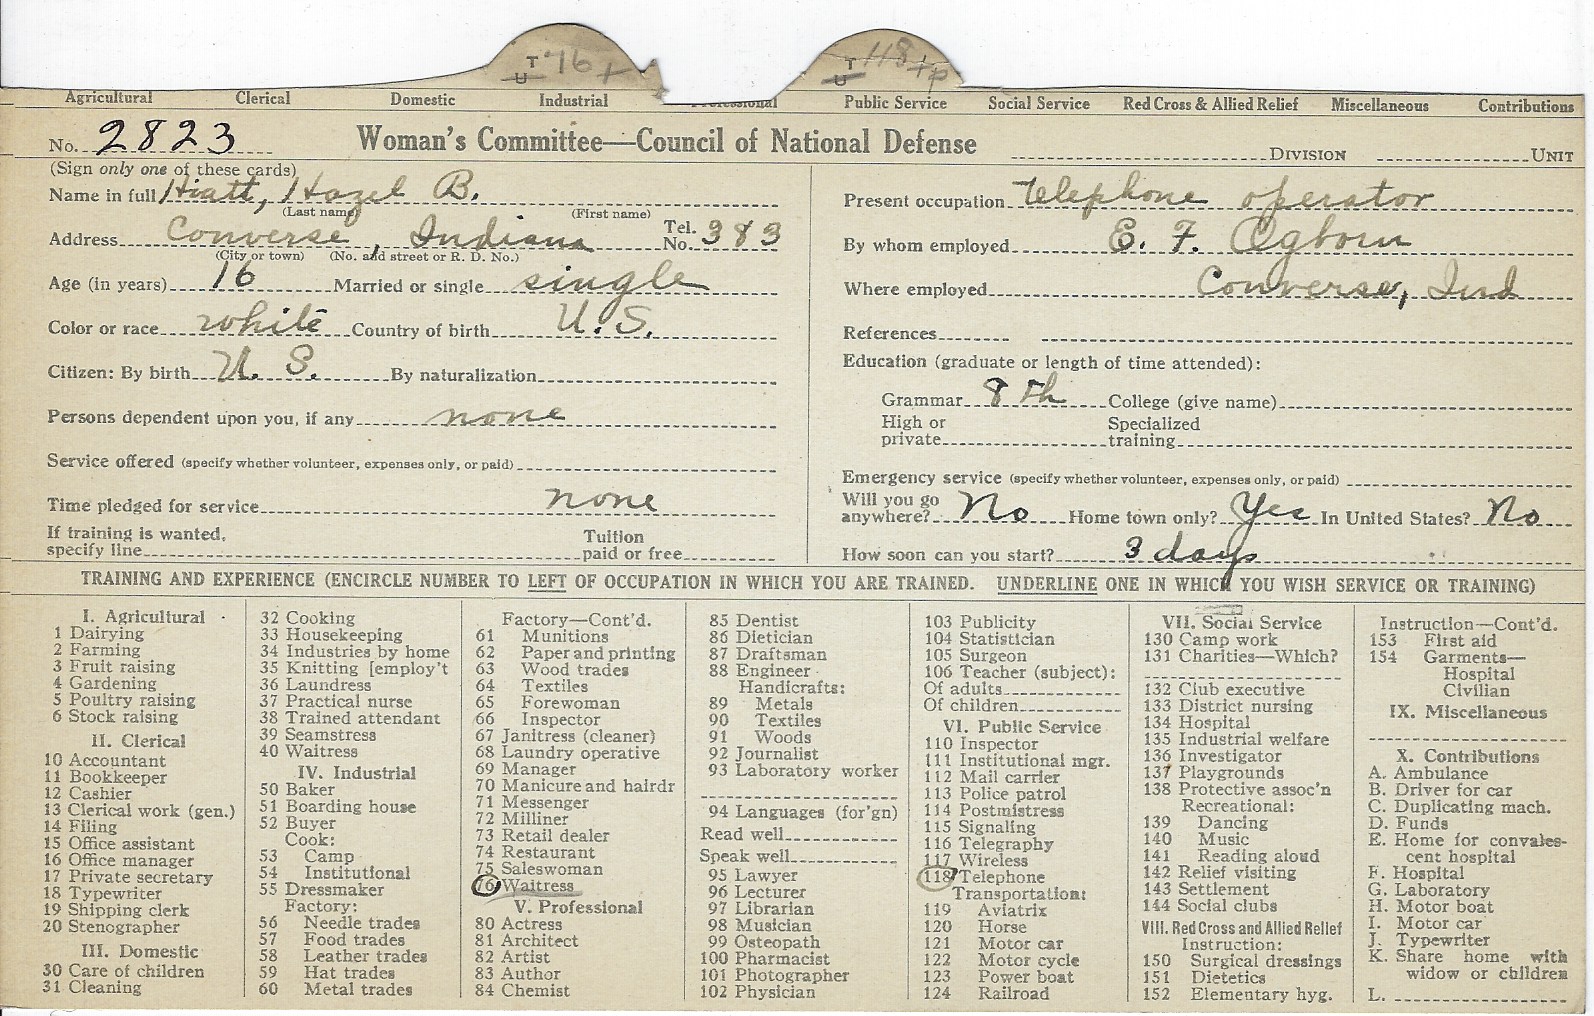 T 76+
U
T 118+p
U
Agricultural Clerical Domestic Industrial Professional Public Service Social Service Red Cross & Allied Relief Miscellaneous Contributions
No. 2823 Woman's Committee—Council of National Defense DIVISION UNIT
(Sign only one of these cards)
Name in full Hiatt, Hazel B.
(Last name) (First name)
Address Converse, Indiana Tel. No. 383
(City or town) (No. and street or R. D. No.)
Age (in years) 16 Married or single single
Color or race white Country of birth U.S.
Citizen: By birth U. S. By naturalization
Persons dependent upon you, if any none
Service offered (specify whether volunteer, expenses only, or paid)
Time pledged for service none
If training is wanted, specify line Tuition paid or free
Present occupation Telephone operator
By whom employed E. F. Ogborn
Where employed Converse, Ind
References
Education (graduate or length of time attended):
Grammar 8th College (give name)
High or private Specialized training
Emergency service (specify whether volunteer, expenses only, or paid)
Will you go anywhere? No Home town only? Yes In United States? No
How soon can you start? 3 days
TRAINING AND EXPERIENCE (ENCIRCLE NUMBER TO LEFT OF OCCUPATION IN WHICH YOU ARE TRAINED. UNDERLINE ONE IN WHICH YOU WISH SERVICE OR TRAINING)
I. Agricultural
1 Dairying
2 Farming
3 Fruit raising
4 Gardening
5 Poultry raising
6 Stock raising
II. Clerical
10 Accountant
11 Bookkeeper
12 Cashier
13 Clerical work (gen.)
14 Filing
15 Office assistant
16 Office manager
17 Private secretary
18 Typewriter
19 Shipping clerk
20 Stenographer
III. Domestic
30 Care of children
31 Cleaning
32 Cooking
33 Housekeeping
34 Industries by home
35 Knitting [employ't
36 Laundress
37 Practical nurse
38 Trained attendant
39 Seamstress
40 Waitress
IV. Industrial
50 Baker
51 Boarding house
52 Buyer
Cook:
53 Camp
54 Institutional
55 Dressmaker
Factory:
56 Needle trades
57 Food trades
58 Leather trades
59 Hat trades
60 Metal trades
Factory—Cont'd.
61 Munitions
62 Paper and printing
63 Wood trades
64 Textiles
65 Forewoman
66 Inspector
67 Janitress (cleaner)
68 Laundry operative
69 Manager
70 Manicure and hairdr
71 Messenger
72 Milliner
73 Retail dealer
74 Restaurant
75 Saleswoman
76 Waitress
V. Professional
80 Actress
81 Architect
82 Artist
83 Author
84 Chemist
85 Dentist
86 Dietician
87 Draftsman
88 Engineer
Handicrafts:
89 Metals
90 Textiles
91 Woods
92 Journalist
93 Laboratory worker
94 Languages (for'gn)
Read well
Speak well
95 Lawyer
96 Lecturer
97 Librarian
98 Musician
99 Osteopath
100 Pharmacist
101 Photographer
102 Physician
103 Publicity
104 Statistician
105 Surgeon
106 Teacher (subject):
Of adults
Of children
VI. Public Service
110 Inspector
111 Institutional mgr.
112 Mail carrier
113 Police patrol
114 Postmistress
115 Signaling
116 Telegraphy
117 Wireless
118 Telephone
Transportation:
119 Aviatrix
120 Horse
121 Motor car
122 Motor cycle
123 Power boat
124 Railroad
VII. Social Service
130 Camp work
131 Charities—Which?
132 Club executive
133 District nursing
134 Hospital
135 Industrial welfare
136 Investigator
137 Playgrounds
138 Protective assoc'n
Recreational:
139 Dancing
140 Music
141 Reading aloud
142 Relief visiting
143 Settlement
144 Social clubs
VIII. Red Cross and Allied Relief
Instruction:
150 Surgical dressings
151 Dietetics
152 Elementary hyg.
Instruction—Cont'd.
153 First aid
154 Garments—
Hospital
Civilian
IX. Miscellaneous
X. Contributions
A. Ambulance
B. Driver for car
C. Duplicating mach.
D. Funds
E. Home for convales-
cent hospital
F. Hospital
G. Laboratory
H. Motor boat
I. Motor car
J. Typewriter
K. Share home with
widow or children
L.